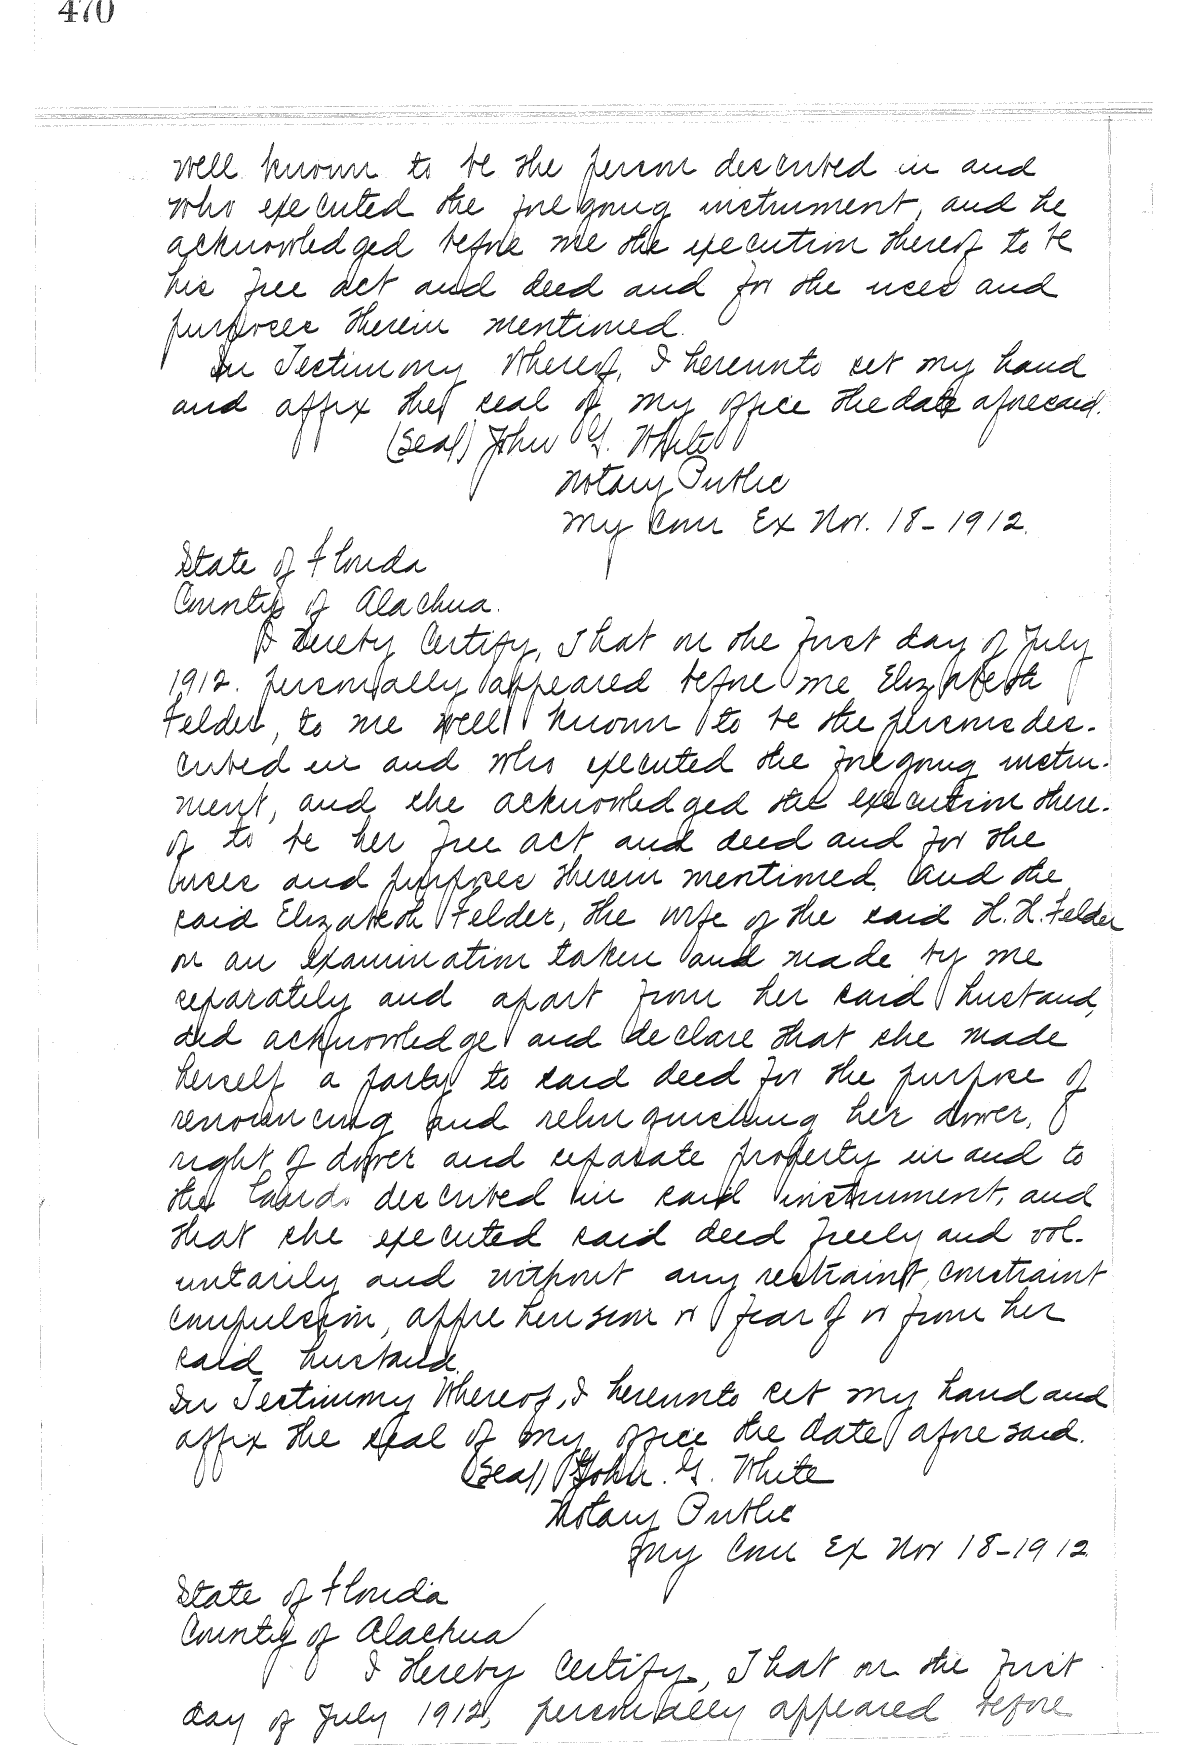 470
well known to be the person described in and
who executed the foregoing instrument, and he
acknowledged before me the execution thereof to be
his free act and deed and for the uses and
purposes therein mentioned.
In Testimony Whereof, I hereunto set my hand
and affix the seal of my office the date aforesaid.
(Seal) John G. White
Notary Public
My Com Ex Nov. 18-1912.
State of Florida
County of Alachua.
I Hereby Certify, That on the First day of July
1912. personally appeared before me Elizabeth
Felder, to me well known to be the persons des-
cribed in and who executed the foregoing instru-
ment, and she acknowledged the execution there-
of to be her free act and deed and for the
uses and purposes therein mentioned. And the
said Elizabeth Felder, the wife of the said H. H. Felder
on an examination taken and made by me
separately and apart from her said husband,
did acknowledge and declare that she made
herself a party to said deed for the purpose of
renouncing and relinquishing her dower,
right of dower and separate property in and to
the lands described in said instrument, and
that she executed said deed freely and vol-
untarily and without any restraint, constraint
compulsion, apprehension or fear of or from her
said husband.
In Testimony Whereof, I hereunto set my hand and
affix the seal of my office the date aforesaid.
(Seal) John. G. White
Notary Public
My Com Ex Nov 18-1912
State of Florida
County of Alachua
I Hereby Certify, That on the First
day of July 1912, personally appeared before